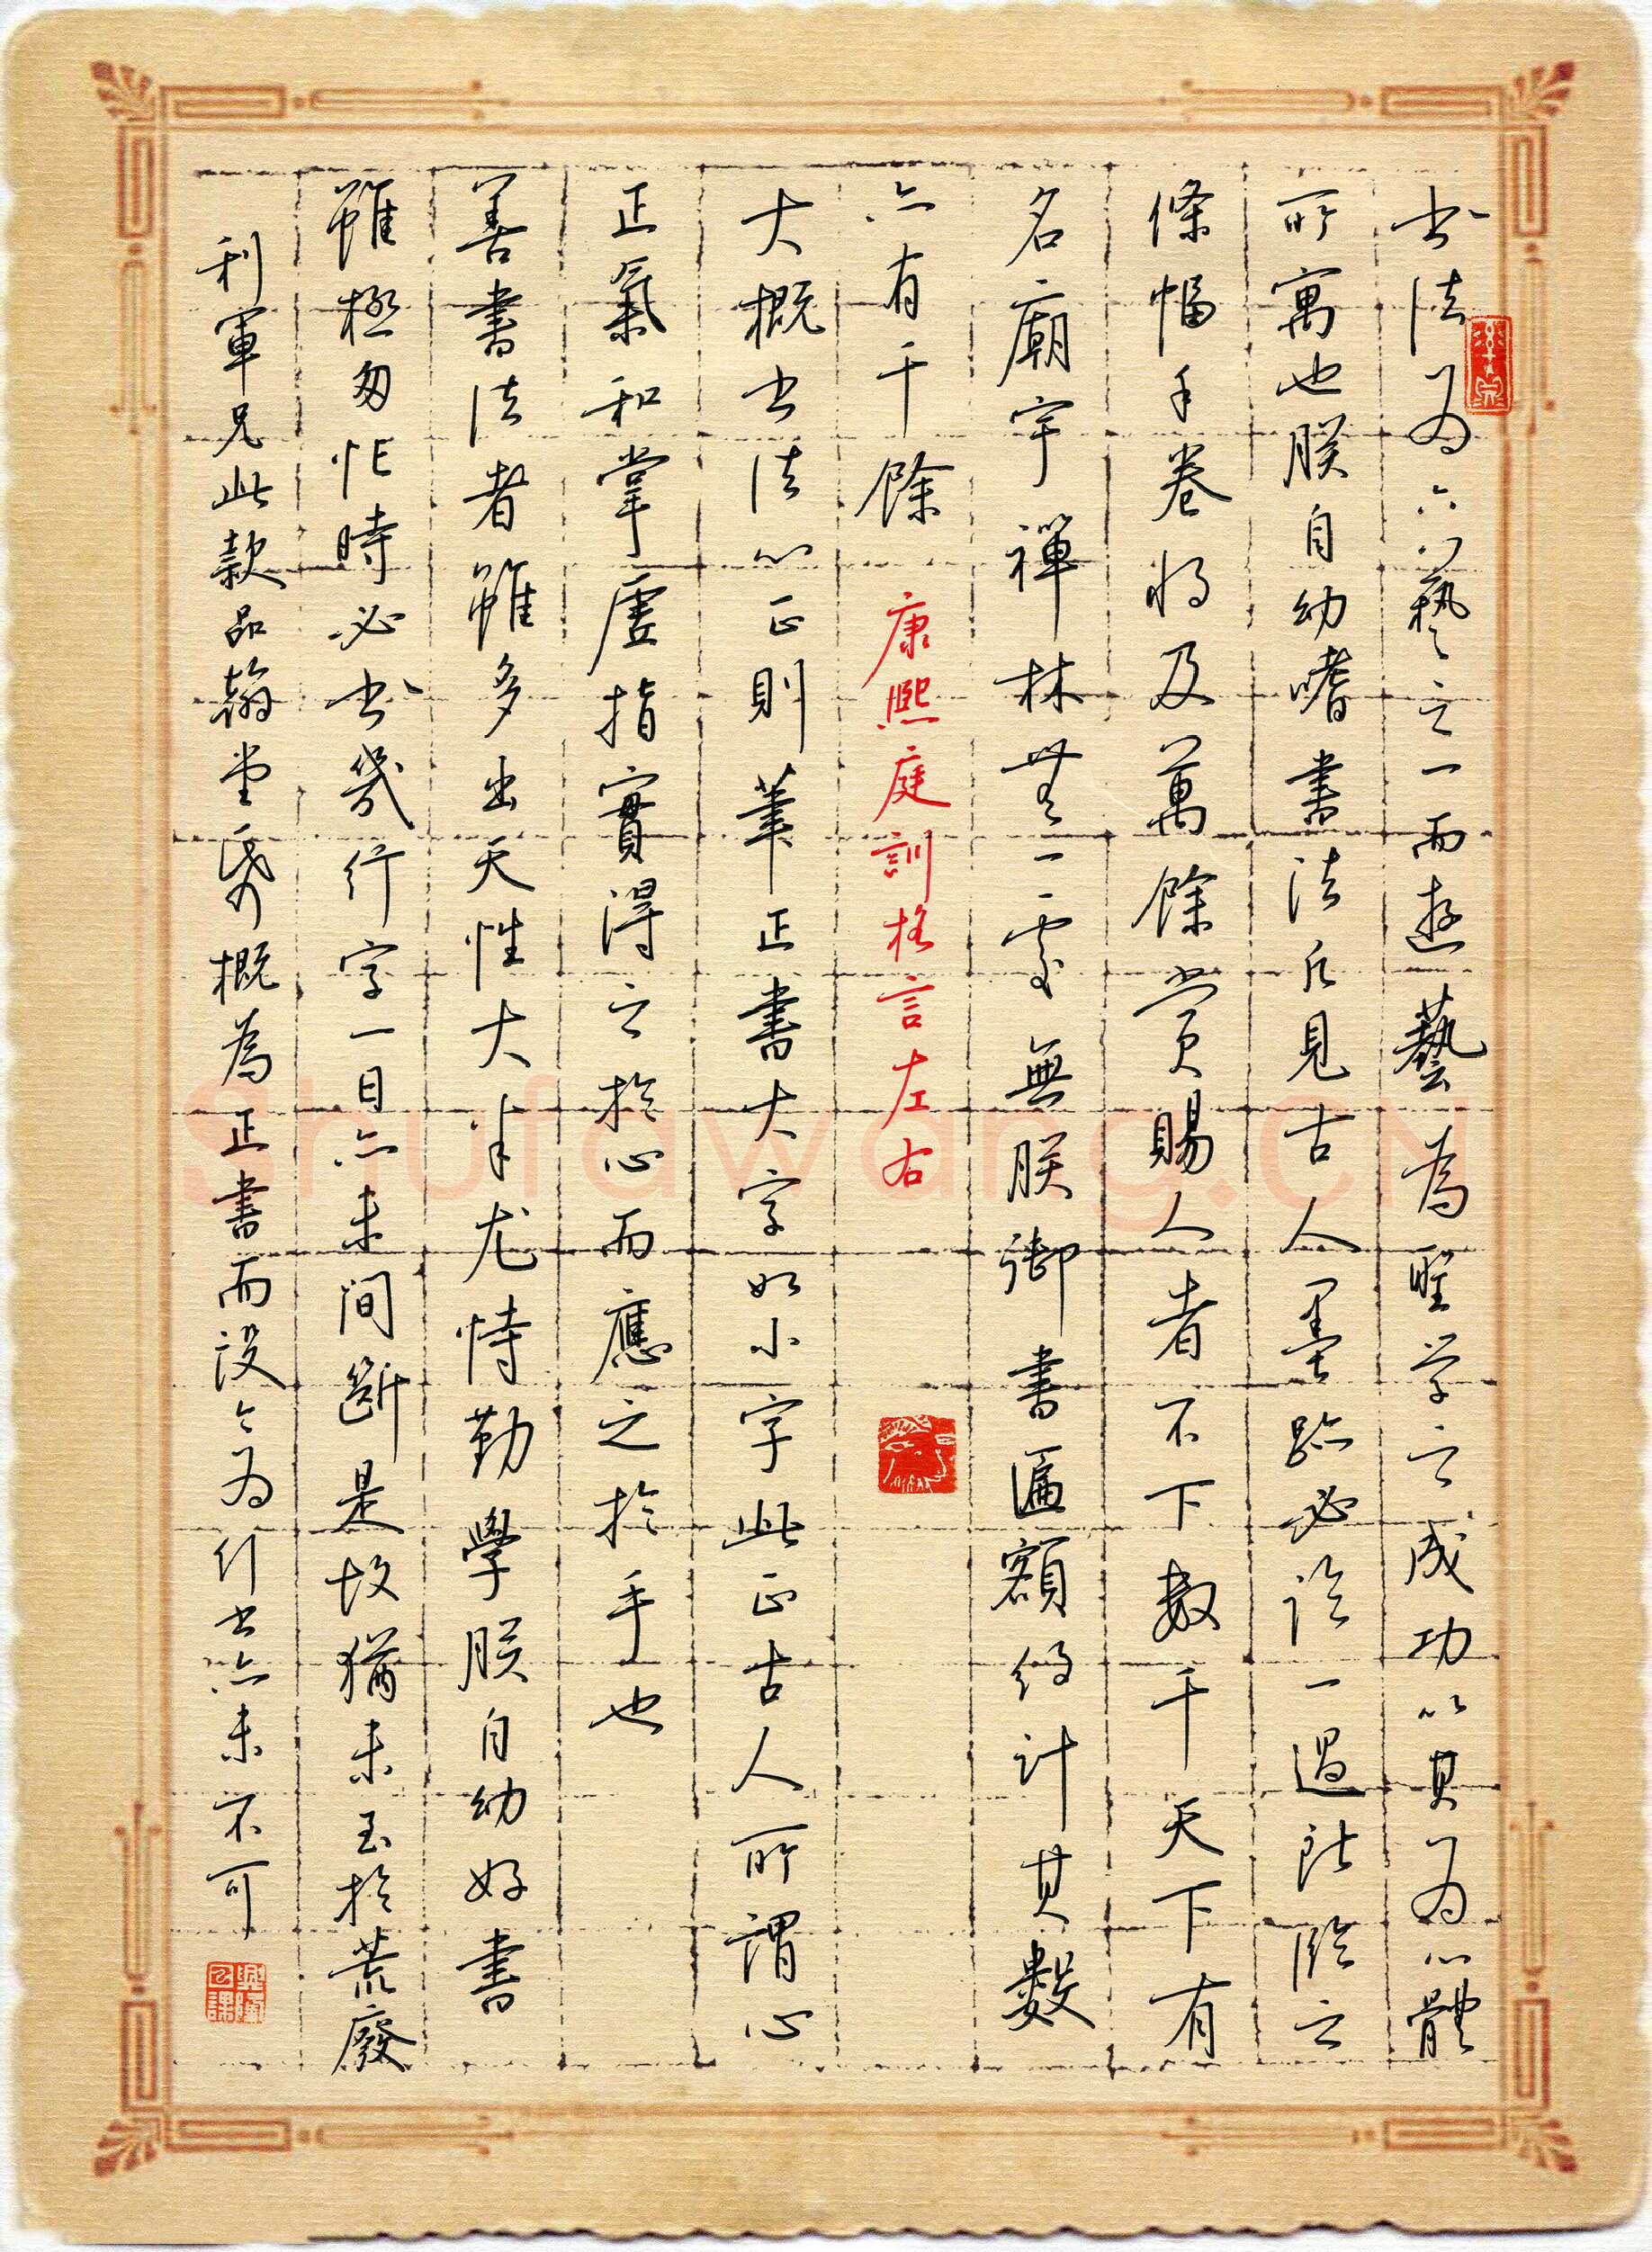 书法为六藝之一而遊藝為聖学之成功以其为心體
所寓也朕自幼嗜書法凡見古人墨跡必临一過所臨之
條幅手卷将及萬餘赏賜人者不下数千天下有
名廟宇禪林無一處無朕御書匾額约计其數
亦有千餘 康熙庭訓格言左右
大概书法心正則筆正書大字如小字此正古人所謂心
正氣和掌虛指實得之於心而應之於手也
善書法者雖多出天性大半尤恃勤學朕自幼好書
雖極匆忙時必书幾行字一日亦未间斷是故猶未至於荒廢
利軍兄此款品翰堂纸概為正書而设今为行书亦未不可
Shufawang.CN